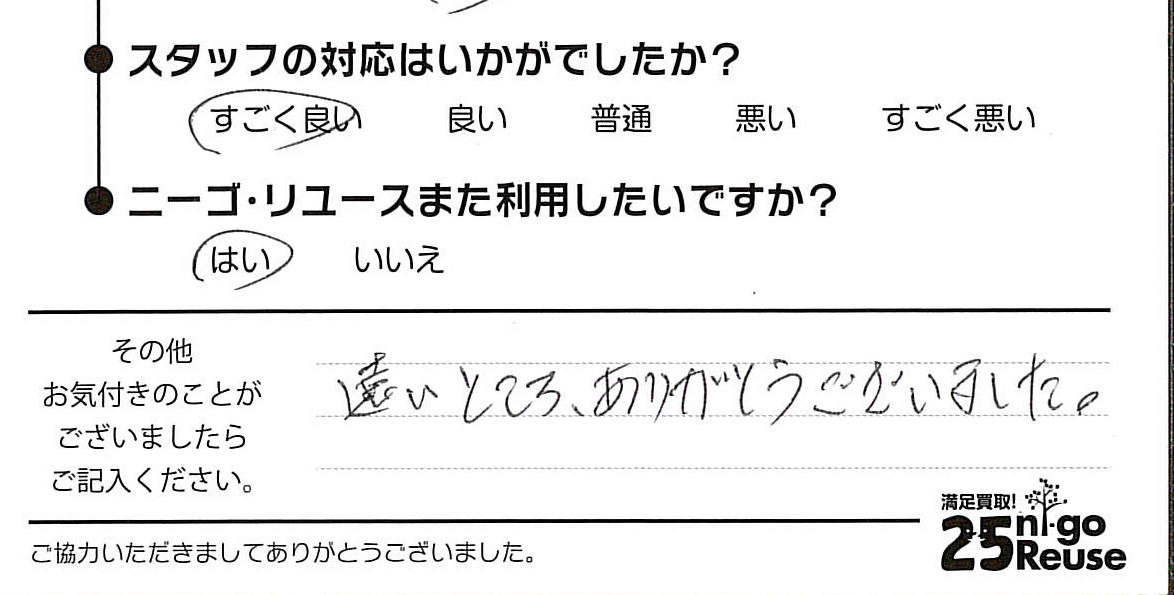 スタッフの対応はいかがでしたか？
すごく良い 良い 普通 悪い すごく悪い
ニーゴ・リユースまた利用したいですか？
はい いいえ
その他
お気付きのことが
ございましたら
ご記入ください。
遠いところ、ありがとうございました。
満足買取!
25 ni-go
Reuse
ご協力いただきましてありがとうございました。